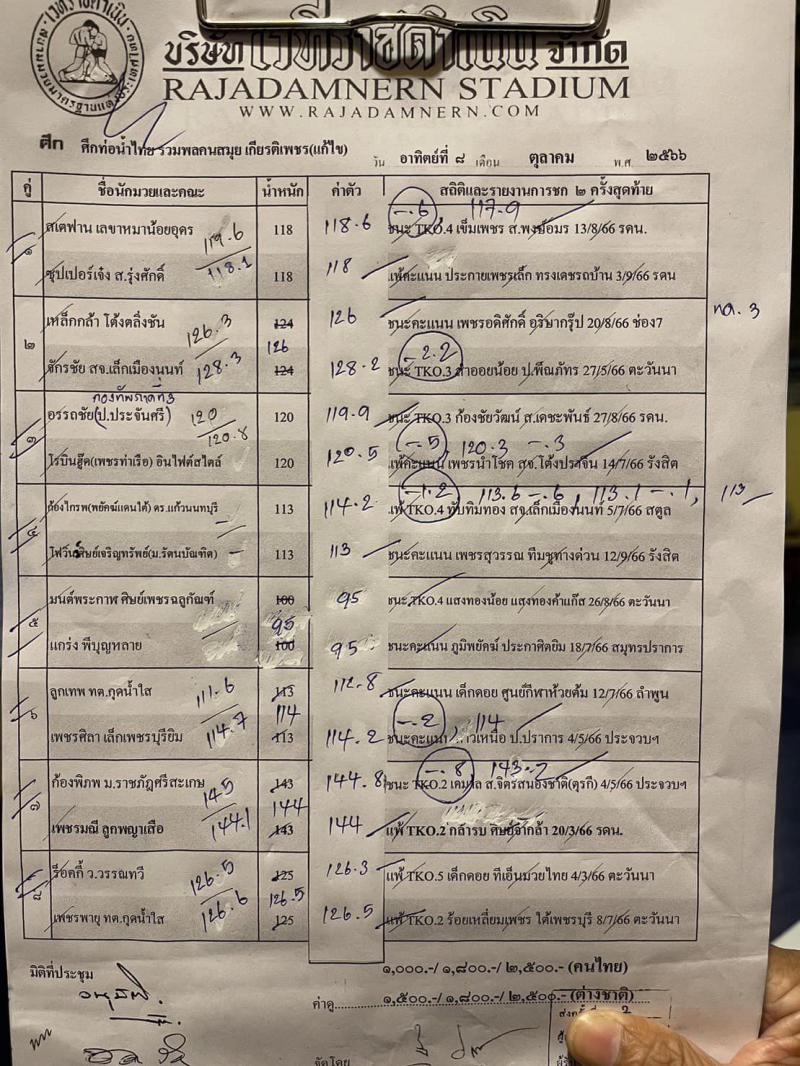 บริษัท เวทีราชดำเนิน จำกัด
RAJADAMNERN STADIUM
WWW.RAJADAMNERN.COM
ศึก ศึกท่อน้ำไทย รวมพลคนสมุย เกียรติเพชร(แก้ไข) วัน อาทิตย์ที่ ๘ เดือน ตุลาคม พ.ศ ๒๕๖๖
คู่ ชื่อนักมวยและคณะ น้ำหนัก ค่าตัว สถิติและรายงานการชก ๒ ครั้งสุดท้าย
-.6, 117.9
สเตฟาน เลขาหมาน้อยอุดร 119.6 118 118.6 ชนะ TKO.4 เข็มเพชร ส.พงษ์อมร 13/8/66 รดน.
๑
ซุปเปอร์เจ๋ง ส.รุ่งศักดิ์ 118.1 118 118 แพ้คะแนน ประกายเพชรเล็ก ทรงเดชรถบ้าน 3/9/66 รดน
เหล็กกล้า โต้งตลิ่งชัน 126.3 124 126 ชนะคะแนน เพชรอดิศักดิ์ อริษากรุ๊ป 20/8/66 ช่อง7 กต. 3
๒ 126 -2.2
จักรชัย สจ.เล็กเมืองนนท์ 128.3 124 128.2 ชนะ TKO.3 ลำออยน้อย ป.พีณภัทร 27/5/66 ตะวันนา
กองทัพภาคที่3
อรรถชัย(ป.ประจันศรี) 120 120 119.9 ชนะ TKO.3 ก้องชัยวัฒน์ ส.เดชะพันธ์ 27/8/66 รดน.
๓ 120.8 -.5, 120.3 -.3
โรบินฮู๊ด(เพชรท่าเรือ) อินไฟต์สไตล์ 120 120.5 แพ้คะแนน เพชรนำโชค สจ.โต้งปราจีน 14/7/66 รังสิต
-1.2 113.6 -.6, 113.1 -.1, 113
ก้องไกรพ(พยัคฆ์แดนใต้) ดร.แก้วนนทบุรี 113 114.2 แพ้ TKO.4 ทับทิมทอง สจ.เล็กเมืองนนท์ 5/7/66 สตูล
๔
โฟวิน์ ศิษย์เจริญทรัพย์(ม.รัตนบัณฑิต) 113 113 ชนะคะแนน เพชรสุวรรณ ทีมชูทางด่วน 12/9/66 รังสิต
มนต์พระกาฬ ศิษย์เพชรฉลูกัณฑ์ 100 95 ชนะ TKO.4 แสงทองน้อย แสงทองค้าแก๊ส 26/8/66 ตะวันนา
๕ 95
แกร่ง พีบุญหลาย 100 95 ชนะคะแนน ภูมิพยัคฆ์ ประกาศิตยิม 18/7/66 สมุทรปราการ
ลูกเทพ ทต.กุดน้ำใส 111.6 113 112.8 ชนะคะแนน เด็กดอย ศูนย์กีฬาห้วยต้ม 12/7/66 ลำพูน
๖ 114 -.2, 114
เพชรศิลา เล็กเพชรบุรียิม 114.7 113 114.2 ชนะคะแนน ป.ปราการ 4/5/66 ประจวบฯ
-.8 143.2
ก้องพิภพ ม.ราชภัฎศรีสะเกษ 145 143 144.8 ชนะ TKO.2 ส.จิตรสนองชาติ(ตุรกี) 4/5/66 ประจวบฯ
๗ 144
เพชรมณี ลูกพญาเสือ 144.1 143 144 แพ้ TKO.2 กล้ารบ ศิษย์จ่ากล้า 20/3/66 รดน.
ร็อคกี้ ว.วรรณทวี 126.5 125 126.3 แพ้ TKO.5 เด็กดอย ทีเอ็นมวยไทย 4/3/66 ตะวันนา
๘ 126.5
เพชรพายุ ทต.กุดน้ำใส 126.6 125 126.5 แพ้ TKO.2 ร้อยเหลี่ยมเพชร ใต้เพชรบุรี 8/7/66 ตะวันนา
มิติที่ประชุม ๑,๐๐๐.-/ ๑,๘๐๐.-/ ๒,๕๐๐.- (คนไทย)
ค่าดู ๑,๕๐๐.-/ ๑,๘๐๐.-/ ๒,๕๐๐.- (ต่างชาติ)
จัดโดย